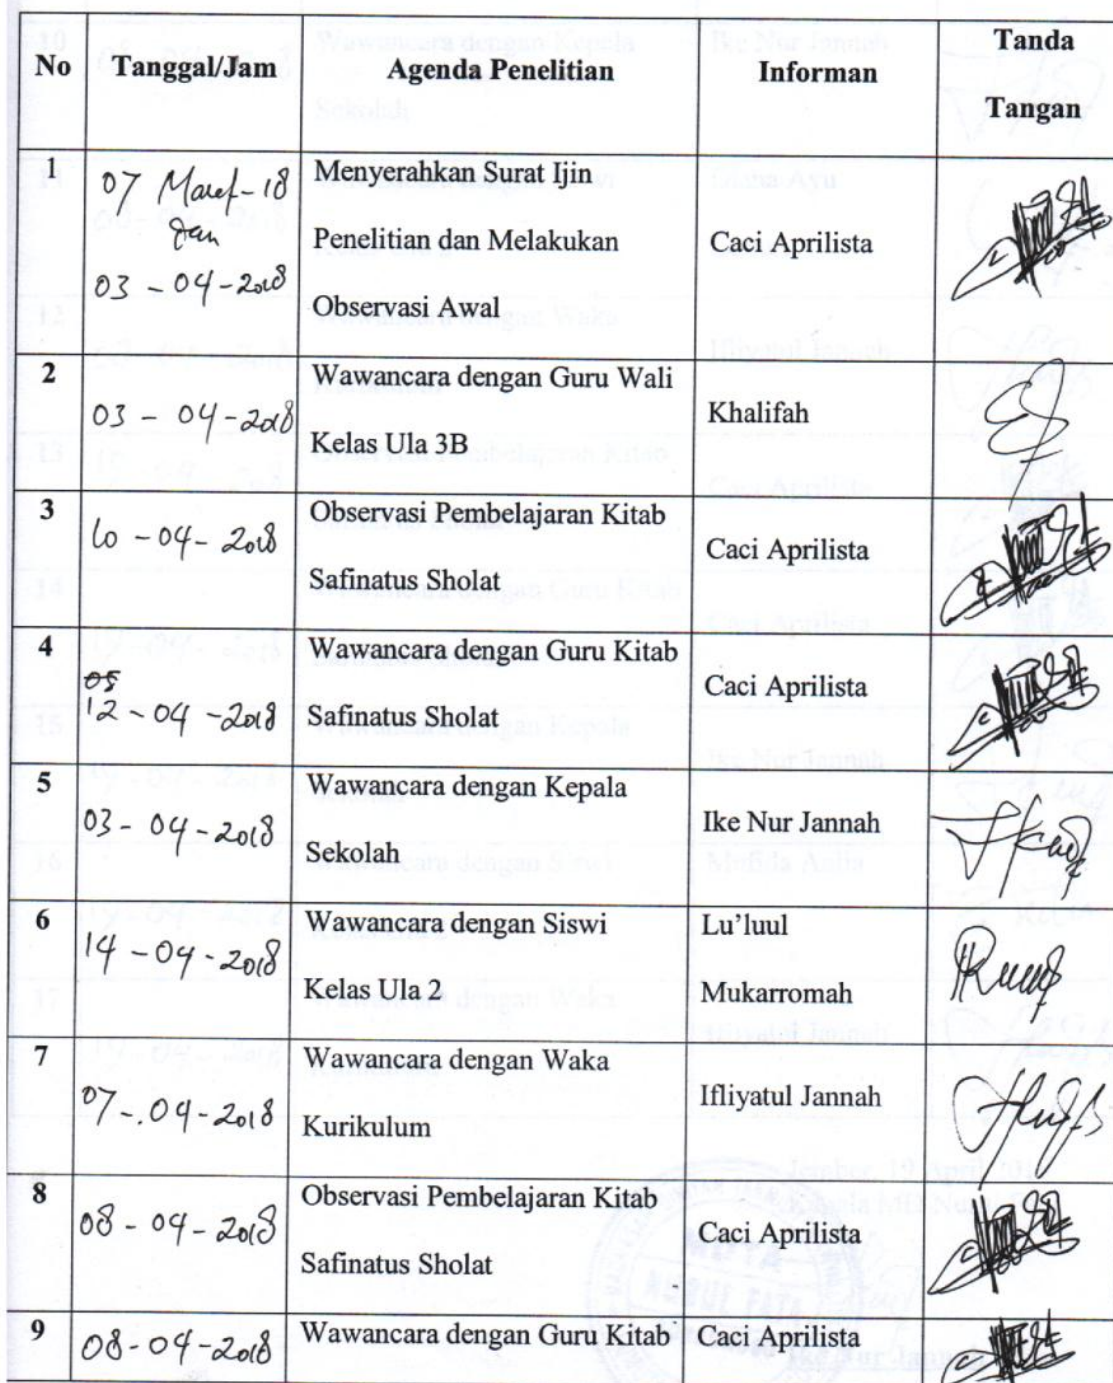 No Tanggal/Jam Agenda Penelitian Informan Tanda Tangan
1 07 Maret-18 dan 03-04-2018 Menyerahkan Surat Ijin Penelitian dan Melakukan Observasi Awal Caci Aprilista
2 03-04-2018 Wawancara dengan Guru Wali Kelas Ula 3B Khalifah
3 10-04-2018 Observasi Pembelajaran Kitab Safinatus Sholat Caci Aprilista
4 05 12-04-2018 Wawancara dengan Guru Kitab Safinatus Sholat Caci Aprilista
5 03-04-2018 Wawancara dengan Kepala Sekolah Ike Nur Jannah
6 14-04-2018 Wawancara dengan Siswi Kelas Ula 2 Lu'luul Mukarromah
7 07-.04-2018 Wawancara dengan Waka Kurikulum Ifliyatul Jannah
8 08-04-2018 Observasi Pembelajaran Kitab Safinatus Sholat Caci Aprilista
9 08-04-2018 Wawancara dengan Guru Kitab Caci Aprilista